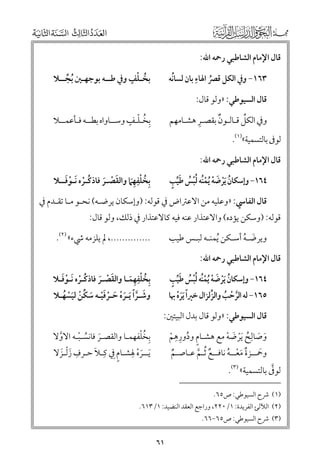 مجلة البحوث والدراسات القرآنية العدد الثالث السنة الثانية
قال الإمام الشاطبي رحمه الله:
١٦٣- وفي الكل قصرُ الهاء بان لسانُه بخُلْفٍ وفي طه بوجهين بُجِّلا
قال السيوطي: «ولو قال:
وفي الكلّ قالونٌ بقصرٍ هشامهم بِخُلفٍ وسواه بطه فأعملا
لوفى بالتسمية»(١).
قال الإمام الشاطبي رحمه الله:
١٦٤- وإسكانُ يرْضَهْ يُمْنُهُ لُبْسُ طَيِّبٍ بِخُلْفِهِمَا والقَصْرَ فاذكُرْهُ نَوْفَلا
قال الفاسي: «وعليه من الاعتراض في قوله: (وإسكان يرضه) نحو ما تقدم في
قوله: (وسكن يؤده) والاعتذار عنه فيه كالاعتذار في ذلك، ولو قال:
ويرضه أسكن يُمنه لبس طيب ..............، لم يلزمه شيء»(٢).
قال الإمام الشاطبي رحمه الله:
١٦٤- وإسكانُ يرْضَهْ يُمْنُهُ لُبْسُ طَيِّبٍ بِخُلْفِهِمَا والقَصْرَ فاذكُرْهُ نَوْفَلا
١٦٥- له الرُّحْبُ والزلزال خيراً يَرَهْ بها وشَرّاً يَرَهْ حَرْفَيْهِ سَكِّنْ لِيَسْهُلا
قال السيوطي: «ولو قال بدل البيتين:
وَصَالحُ يَرْضَهْ مع هشامٍ ودُورِهِمْ بخُلفهما والقصر فانسُبْه الاوَّلا
وحمزةَ مَعْهُ نافعٌ ثُمَّ عاصمٌ يَرَهْ لهشامٍ في كِلا حرفِ زُلْزِلا
لوفَّى بالتسمية»(٣).
(١) شرح السيوطي: ص٦٥.
(٢) اللآلئ الفريدة: ١/ ٢٢٠، وراجع العقد النضيد: ١/ ٦١٣.
(٣) شرح السيوطي: ص٦٥-٦٦.
٦١